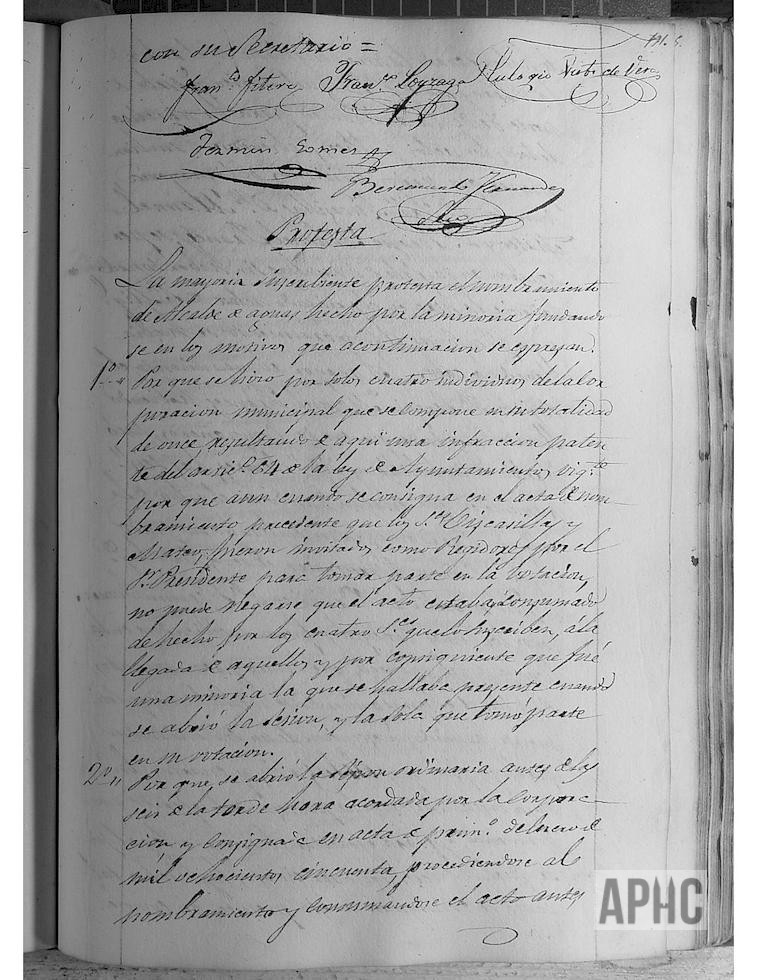 con su Secretario =
Fran.co Fitero Fran.co Loyzaga Eulogio de Vera
Fermin Gomez
Beremundo Hernandez
Srio
Protesta
La mayoria suscribiente protesta el nombramiento
de Alcalde de aguas hecho por la minoria fundando
se en los motivos que acontinuacion se espresan.
1.o Por que se hizo por solos cuatro individuos de la cor
poracion municipal que se compone en su totalidad
de once resultando de aqui una infraccion paten
te del artic.o 64 de la ley de Ayuntamientos vig.te
por que aun cuando se consigna en el acta de nom-
bramiento precedente que los S.res Viscasillas y
Mateo, fueron invitados como Regidores por el
S.r Presidente para tomar parte en la votacion,
no puede negarse que el acto estaba consumado
de hecho por los cuatro S.res que lo suscriben, á la
llegada de aquellos y por consiguiente que fué
una minoria la que se hallaba presente cuando
se abrió la sesion, y la sola que tomó parte
en su votacion.
2.o Por que se abrió la sesion ordinaria antes de las
seis de la tarde hora acordada por la Corpora-
cion y consignada en acta de prim.o de Enero de
mil ochocientos cincuenta procediendose al
nombramiento y consumandose el acto antes
APHC